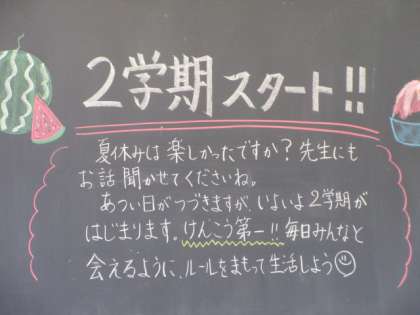 2学期スタート!!
夏休みは楽しかったですか?先生にも
お話聞かせてくださいね。
あつい日がつづきますが、いよいよ2学期が
はじまります。けんこう第一!!毎日みんなと
会えるように、ルールをまもって生活しよう☺